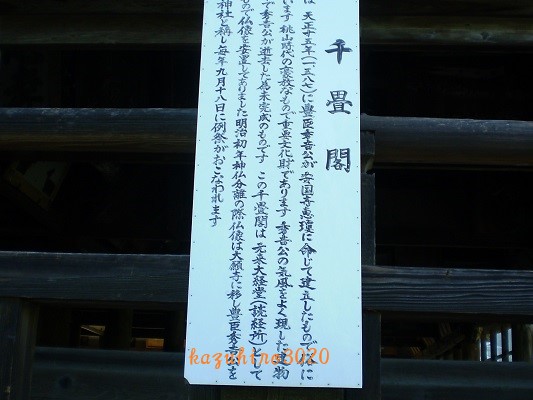 千畳閣
は 天正十五年(一五八七)に豊臣秀吉公が 安国寺恵瓊に命じて建立したもので
います 桃山時代の豪放なもので重要文化財であります 秀吉公の気風をよく現した建物
で秀吉公が逝去した為未完成のものです この千畳閣は 元来大経堂(読経所)として
もので仏像を安置してありました明治初年神仏分離の際仏像は大願寺に移し豊臣秀吉公を
神社と称し毎年九月十八日に例祭がおこなわれます
kazuhiro3020